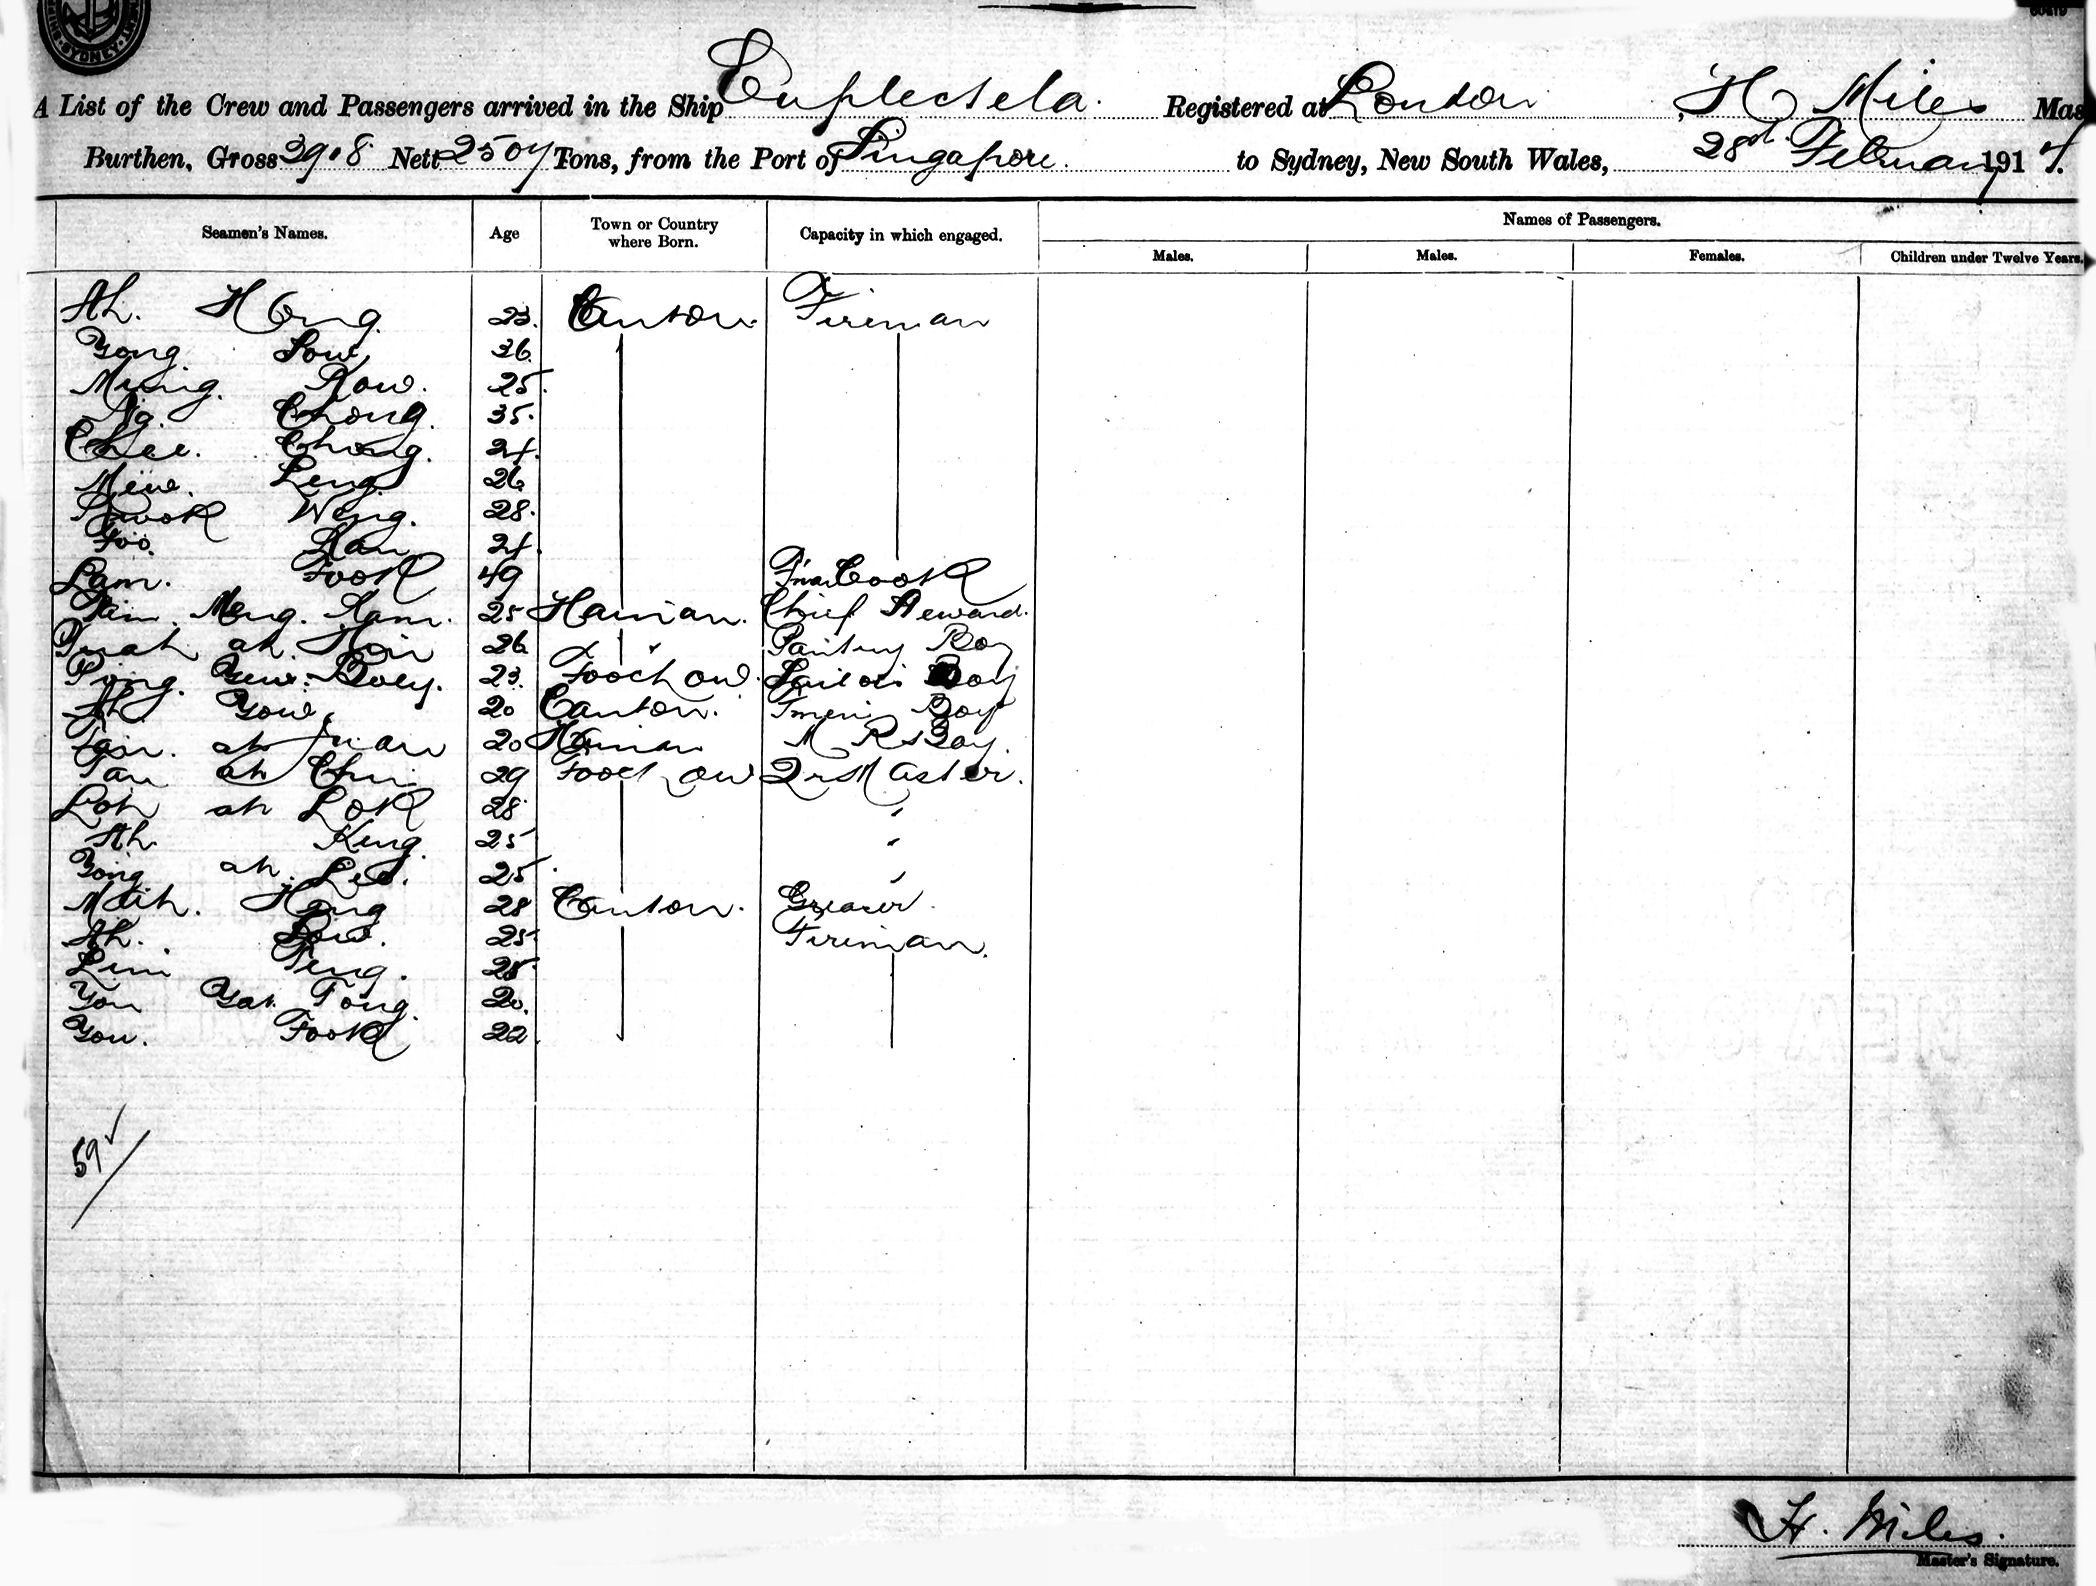 SYDNEY
60419
A List of the Crew and Passengers arrived in the Ship Euplectela. Registered at London, H Miles Mas
Burthen, Gross 3908 Nett 2507 Tons, from the Port of Singapore. to Sydney, New South Wales, 28th February 1917.
Seamen's Names. Age Town or Country where Born. Capacity in which engaged. Names of Passengers.
Males. Males. Females. Children under Twelve Years.
Ah. Hong. 23. Canton. Fireman
Yong Sow 36.
Ming. Kow. 25.
Ng. Chong. 35.
Chee. Chong. 24.
Mew. Leng 26
Kwok Weng. 28.
Foo. Kan 24.
Lam. Fook 49 Cook
Meng. Kam. 25 Hainan. Chief Steward.
ah. Hoi 26 " " Pantry Boy
Yew. Boey. 23. Foochow. Sailors Boy
Ah Yow. 20 Canton. Boy
ah Juan 20 Hainan M R Boy.
Tan ah Chui 29 Foochow Qr Master.
Loh ah Lok 28 "
Ah King. 25 "
Yong ah. Lee. 25. "
Mah. Hong 28 Canton. Greaser.
Ah. Sow. 25. Fireman.
Lim Teng. 25.
You Yat Tong. 20.
You. Fook 22.
59 ✓
H. Miles.
Master's Signature.